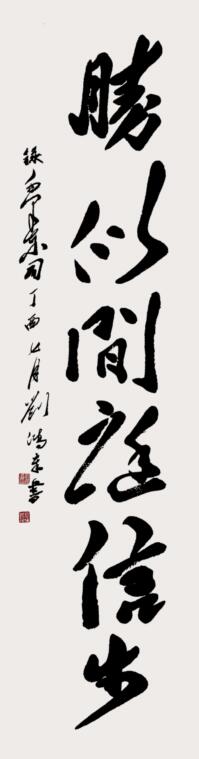 勝似閒庭信步
錄毛澤東詞丁酉七月劉鴻來書